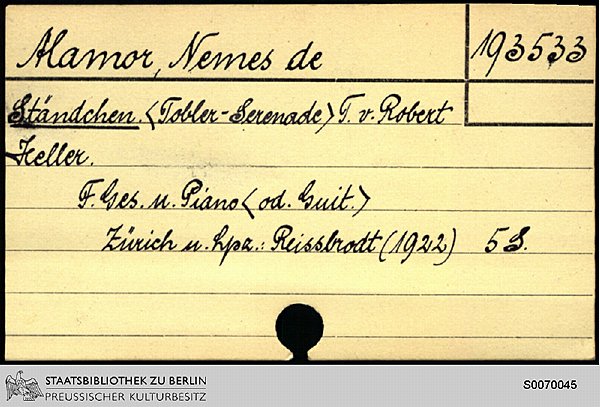 Alamor, Nemes de
193533
Ständchen. <Tobler-Serenade> T. v. Robert
Heller.
F. Ges. u. Piano <od. Guit.>
Zürich u. Lpz.: Reissbrodt (1922) 5 S.
STAATSBIBLIOTHEK ZU BERLIN
PREUSSISCHER KULTURBESITZ
S0070045